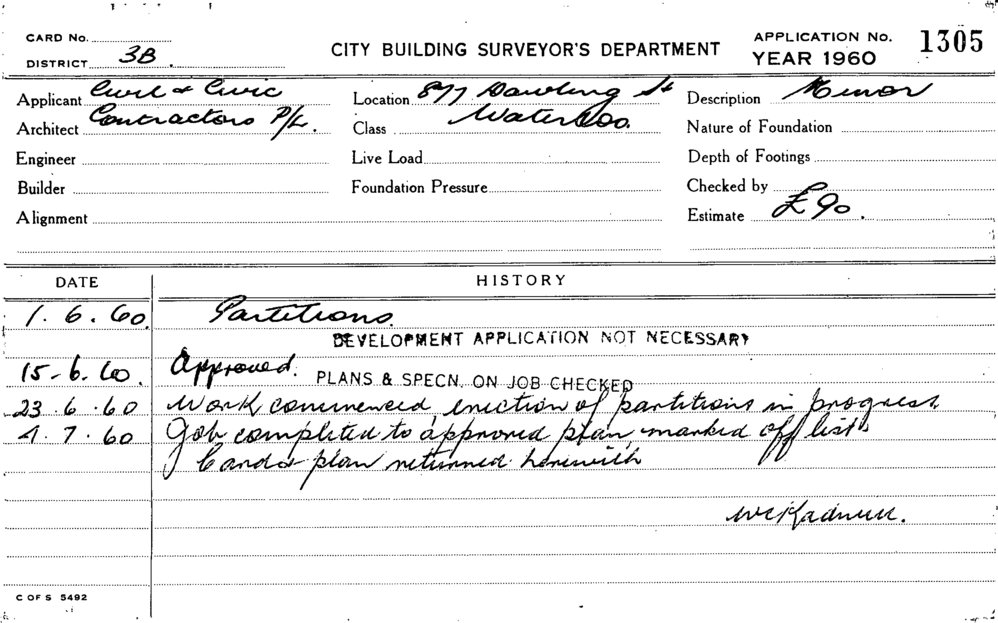 CARD No.
DISTRICT 3B
CITY BUILDING SURVEYOR'S DEPARTMENT
APPLICATION No. 1305
YEAR 1960
Applicant Civil & Civic
Architect Contractors P/L.
Engineer
Builder
Alignment
Location 877 Dowling St
Class Waterloo.
Live Load
Foundation Pressure
Description Minor
Nature of Foundation
Depth of Footings
Checked by
Estimate £90.
DATE HISTORY
1.6.60 Partitions.
DEVELOPMENT APPLICATION NOT NECESSARY
15-6.60. Approved.
PLANS & SPECN. ON JOB CHECKED
23.6.60 Work commenced, erection of partitions in progress
4.7.60 Job completed to approved plan, marked off list
Card & plan returned herewith
C OF S 5492